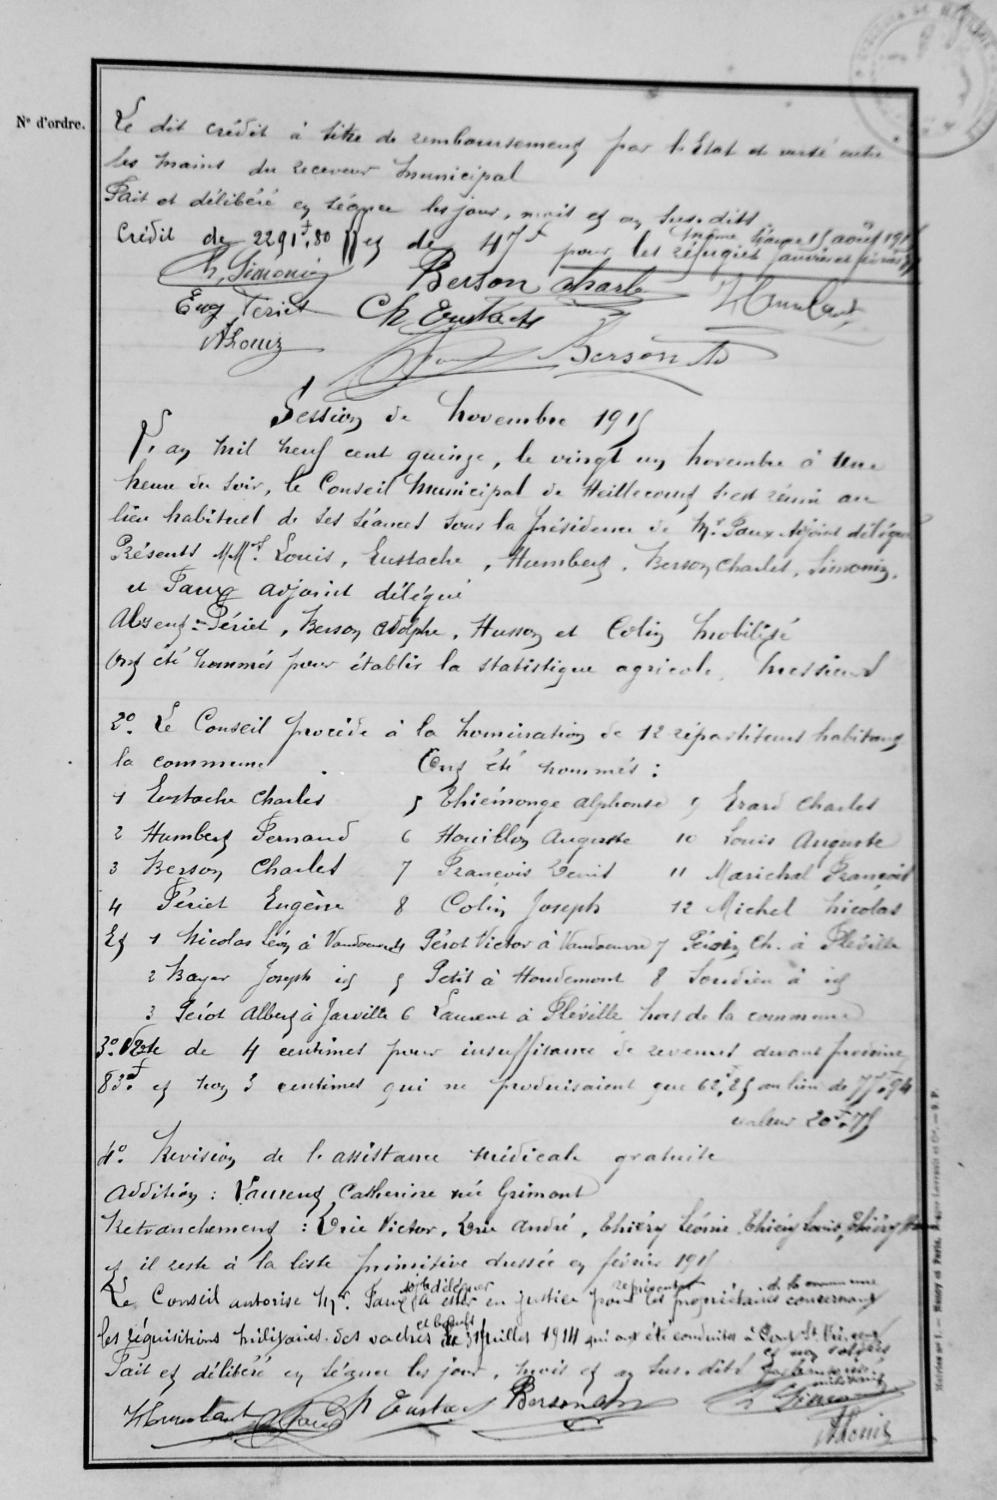 N° d'ordre.
Le dit crédit à titre de remboursement par l'Etat et versé entre
les mains du receveur municipal
Fait et délibéré en séance les jour, mois et an sus-dits
même séance 15 août 1915
Crédit de 2291f,80 et de 47f pour les réfugiés janvier et février
Ch. Simonin Berson Charles F Humbert
Eug Fériet Ch Eustache
A Louis Berson Ad
Session de Novembre 1915
L'an mil neuf cent quinze, le vingt un novembre à une
heure du soir, le Conseil Municipal de Heillecourt s'est réuni au
lieu habituel de ses séances sous la présidence de Mr. Faux Adjoint délégué
Présents MMrs. Louis, Eustache, Humbert, Berson Charles, Simonin,
et Faux adjoint délégué
Absents = Fériet, Berson Adolphe, Husson et Colin mobilisé
Ont été nommés pour établir la statistique agricole, Messieurs
2°. Le Conseil procède à la nomination de 12 répartiteurs habitant
la commune Ont été nommés :
1 Eustache Charles 5 Thiémonge Alphonse 9 Erard Charles
2 Humbert Fernand 6 Houillon Auguste 10 Louis Auguste
3 Berson Charles 7 François Denis 11 Marichal François
4 Fériet Eugène 8 Colin Joseph 12 Michel Nicolas
Et 1 Nicolas Léon à Vandoeuvre 4 Pérot Victor à Vandoeuvre 7 Ch. à Fléville
2 Bayer Joseph id 5 Petit à Houdemont 8 à id
3 Pérot Albert à Jarville 6 Laurent à Fléville hors de la commune
3°. Vote de 4 centimes pour insuffisance de revenus devant produire
83f. et non 3 centimes qui ne produisaient que 62f,25 au lieu de 77f,94
valeur 20f,75
4°. Revision de l'assistance médicale gratuite
Addition : Laurent Catherine née Grimont
Retranchement : Victor, André, Thiéry Léonie, Thiéry Louis, Thiéry
et il reste à la liste primitive dressée en février 1915
adjt délégué représenter de la commune
Le Conseil autorise Mr. Faux à ester en justice pour les propriétaires concernant
et boeufs
les réquisitions militaires des vaches de 31 Juillet 1914 qui ont été conduites à Pont St Vincent
et non soldées
Fait et délibéré en séance les jour, mois et an sus-dits par l'autorité
militaire
F Humbert Faux Ch Eustache Berson Ch Ch Simonin
A Louis